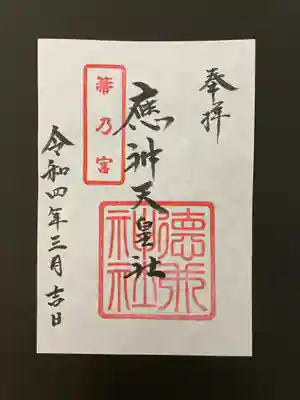 奉拝
應神天皇社
箒乃宮
德兼
神社
令和四年三月吉日